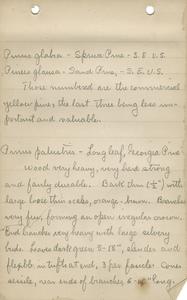 Pinus glabra - Spruce Pine - S.E.U.S.
Pinus clausa - Sand Pine, - S.E.U.S.
Those numbered are the commercial
yellow pines, the last three being less im-
portant and valuable.
Pinus palustris - Longleaf, Georgia Pine
Wood very heavy, very hard strong
and fairly durable. Bark thin (½") with
large loose thin scales, orange-brown. Branches
very few, forming an open irregular crown.
End branches very heavy with large silvery
buds. Leaves dark green 8-18", slender and
flexible, in tufts at end, 3 per fascicle. Cones
sessile, near ends of branches 6-10" long